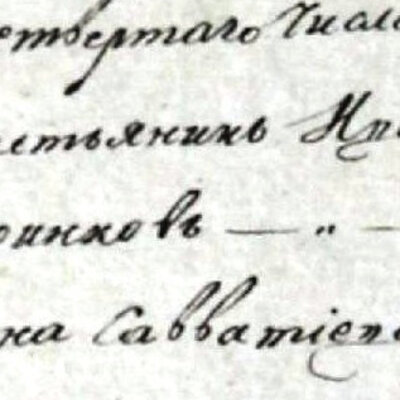 етвертаго Числа
стьянинъ Ир
онниковъ — „ —
на Савватіев